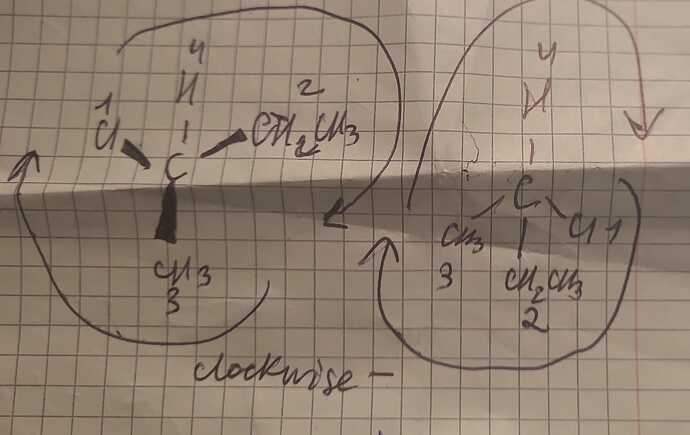 4
H
1
Cl
2
CH2CH3
C
CH3
3
4
H
C
CH3
Cl 1
3
CH2CH3
2
clockwise -